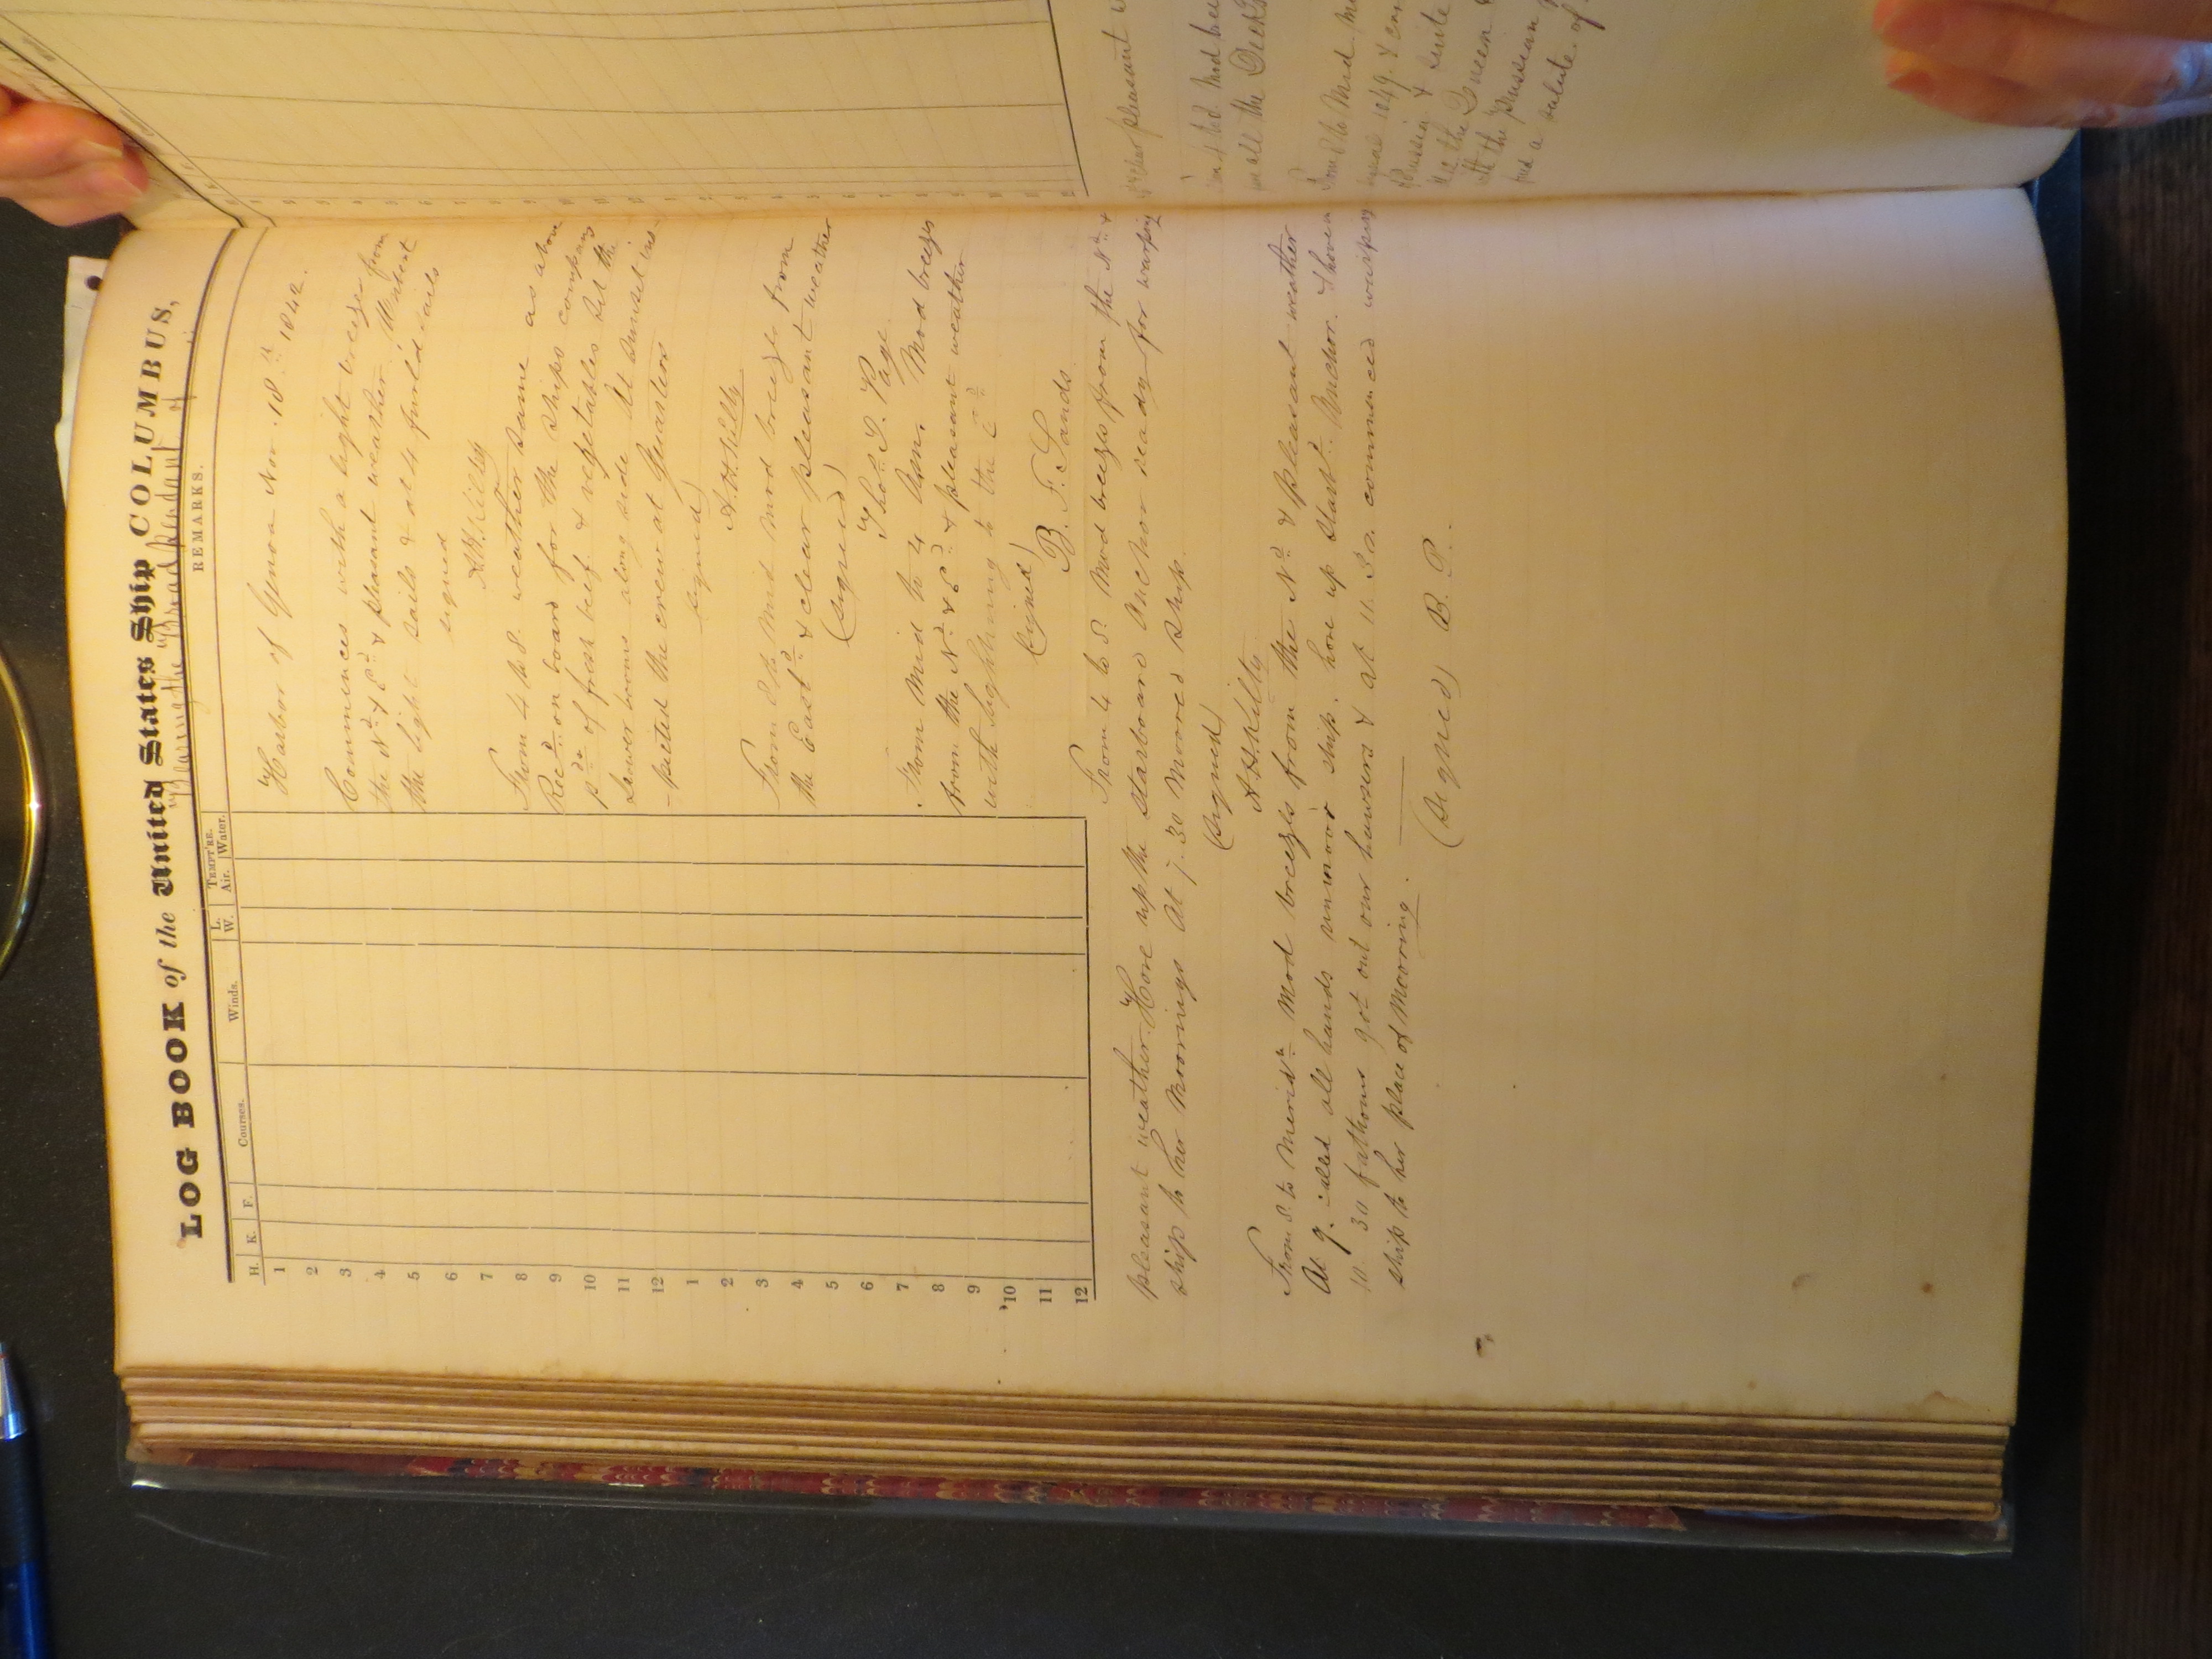 LOG BOOK of the United States Ship COLUMBUS,
Wearing the Broad Pendant of
H. K. F. Courses. Winds. L. W. TEMPT'RE. Air. Water. REMARKS.
1
2
3
4
5
6
7
8
9
10
11
12
1
2
3
4
5
6
7
8
9
10
11
12
Harbor of Genoa Nov. 18th 1842.
Commences with a light breeze from
the Nd & Ed & pleasant weather.
the light sails & at 4 furled sails
signed
A.H. Kilty
From 4 to 8. weather same as above
Recd on board for the ships company
pds of fresh beef & vegetables Set the
Lower booms along side At Sunset ins-
-pected the crew at Quarters
signed)
A.H. Kilty
From 8 to Mid Mod breezes from
the Eastd & clear pleasant weather
(signed)
Thos. J. Page
From Mid to 4 Am. Mod breezes
from the Nd & Ed & pleasant weather
with lightning to the Ed
(signed)
B. F. Sands
From 4 to 8. Mod breezes from the Nd &
pleasant weather. Hove up the starboard Anchor ready for warping
ship to her Moorings At 7.30 Moored Ship.
(signed)
A H Kilty
From 8 to Meridn Mod breezes from the Nd & pleasant weather
At 9. called all hands unmoor ship. hove up Starbd Anchor. & hove in
30 fathoms got out our hawsers & at 11.30. commenced warping
ship to her place of Mooring.
(signed) B. P.
pleasant
all the Decks
the Queen
the Russian
a salute of